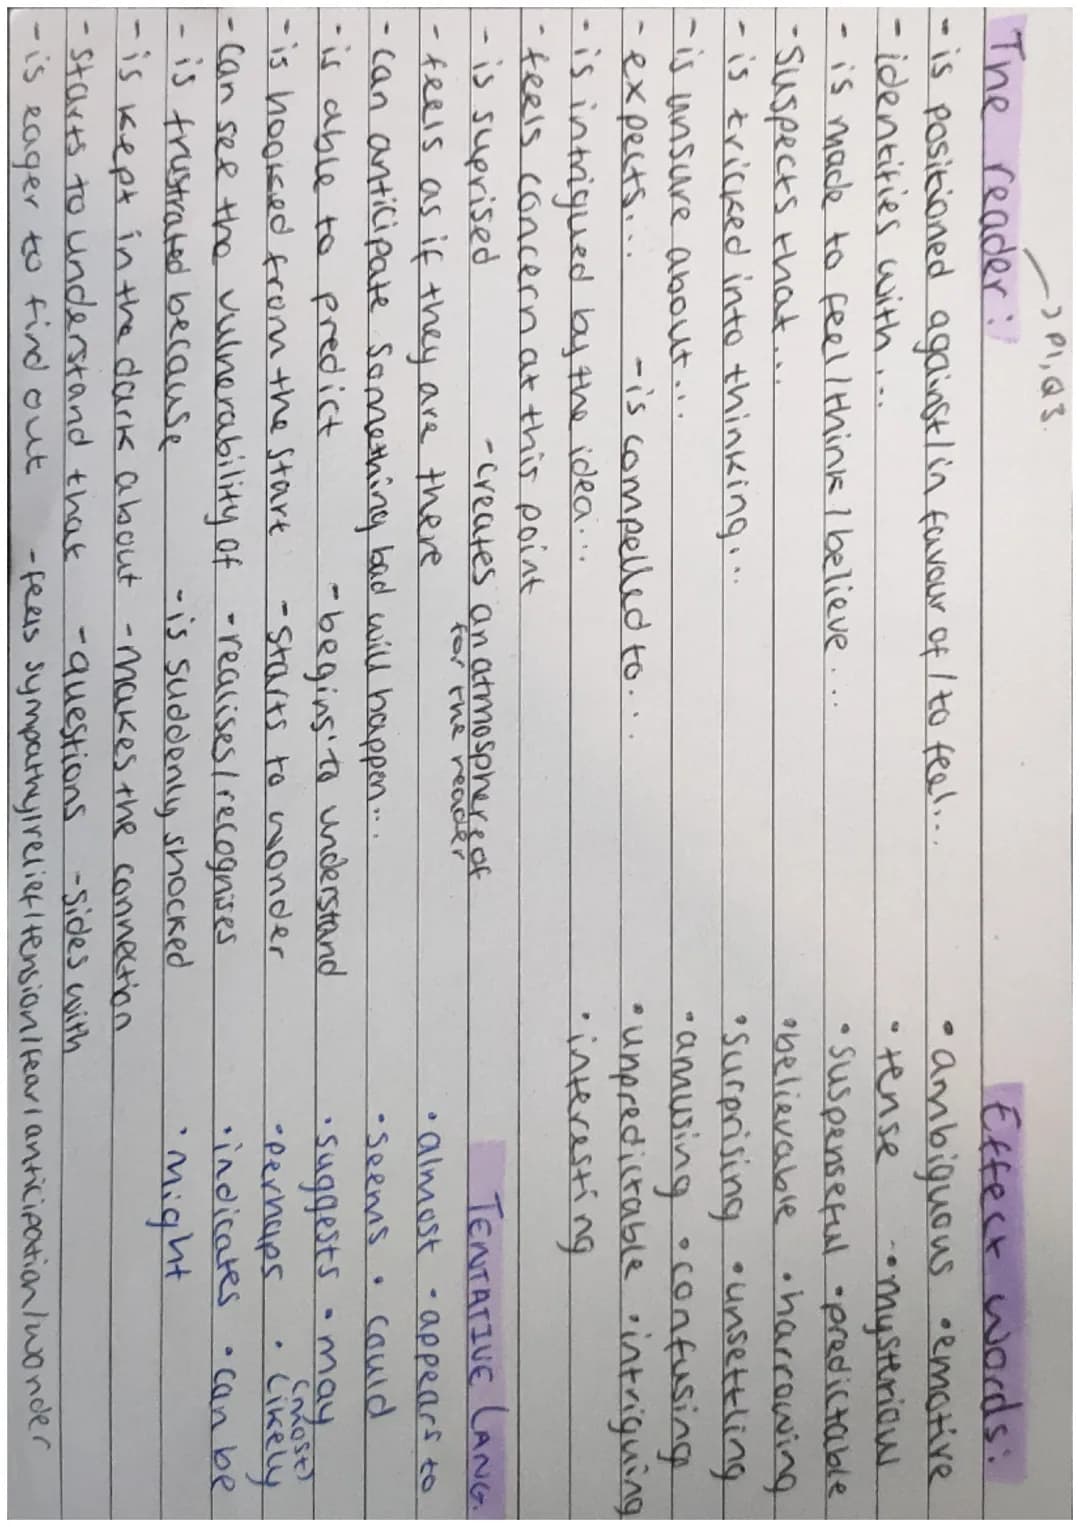 → P1, Q3.
The reader:
- is positioned against/in favour of / to feel...
- identifies with...
- is made to feel / think / believe...
- suspects that...
- is tricked into thinking...
- is unsure about...
- expects... - is compelled to...
- is intrigued by the idea...
- feels concern at this point
- is suprised - creates an atmosphere of for the reader
- feels as if they are there
- can anticipate something bad will happen...
- is able to predict - begins to understand
- is hooked from the start - starts to wonder
- can see the vulnerability of - realises / recognises
- is frustrated because - is suddenly shocked
- is kept in the dark about - makes the connection
- starts to understand that - questions - sides with
- is eager to find out - feels sympathy/relief/tension/fear/anticipation/wonder
Effect words:
• ambiguous • emotive
• tense • mysterious
• suspenseful • predictable
• believable • harrowing
• surprising • unsettling
• amusing • confusing
• unpredictable • intriguing
• interesting
TENTATIVE LANG.
• almost • appears to
• seems • could
• suggests • may
• perhaps • (most) likely
• indicates • can be
• might